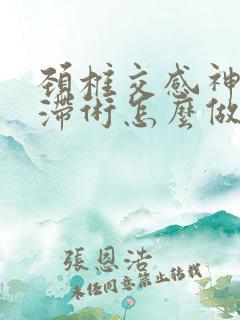 頚椎交感神
滯術怎麼做
張恩浩
未經同意禁止轉載